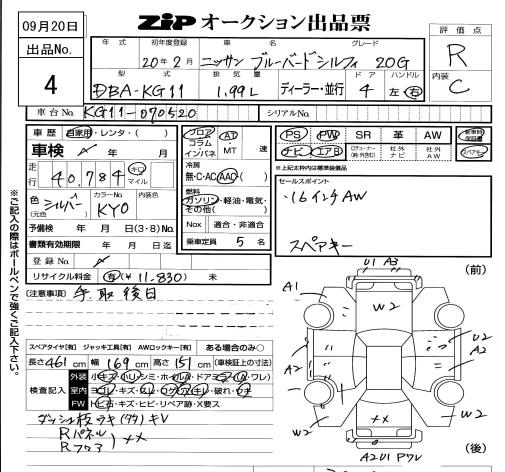 09月20日
ZiP オークション出品票
出品No.
4
評価点
R
内装
C
年式 初年度登録 車名 グレード
20年2月 ニッサン ブルーバードシルフィ 20G
型式 排気量 ディーラー・並行 ドア ハンドル
DBA-KG11 1.99L 4 左 右
車台No. KG11-070520 シリアルNo.
車歴 自家用・レンタ・( )
車検 年 月
走行 40,784 キロ マイル
色(元色) シルバー カラーNo. KY0 内装色
予備検 年 月 日(3・8)No.
書類有効期限 年 月 日迄
登録No.
リサイクル料金 有(¥ 11,830) 未
フロア コラム インパネ
AT MT 速
冷房
無・C・AC・AAC( )
燃料
ガソリン・軽油・電気・その他( )
Nox 適合・非適合
乗車定員 5 名
PS PW SR 革 AW 新車時保証書
ナビ エアB 社外ナビ 社外AW スペアキー
※上記太枠内は標準装備品
セールスポイント
・16インチAW
スペアキー
※ご記入の際はボールペンで強くご記入下さい。
[注意事項] 手取後日
スペアタイヤ[有] ジャッキ工具[有] AWロックキー[有] ある場合のみ○
長さ 461 cm 幅 169 cm 高さ 151 cm (車検証上の寸法)
検査記入
外装
室内
FW トビ石・キズ・ヒビ・リペア跡・X要ス
ダッシュ板
Rパネル
Rフロア
XX
(前)
U1 A3
A1
W2
U2
A2
A2
W2
XX
W2
A2U1 Pワレ
(後)